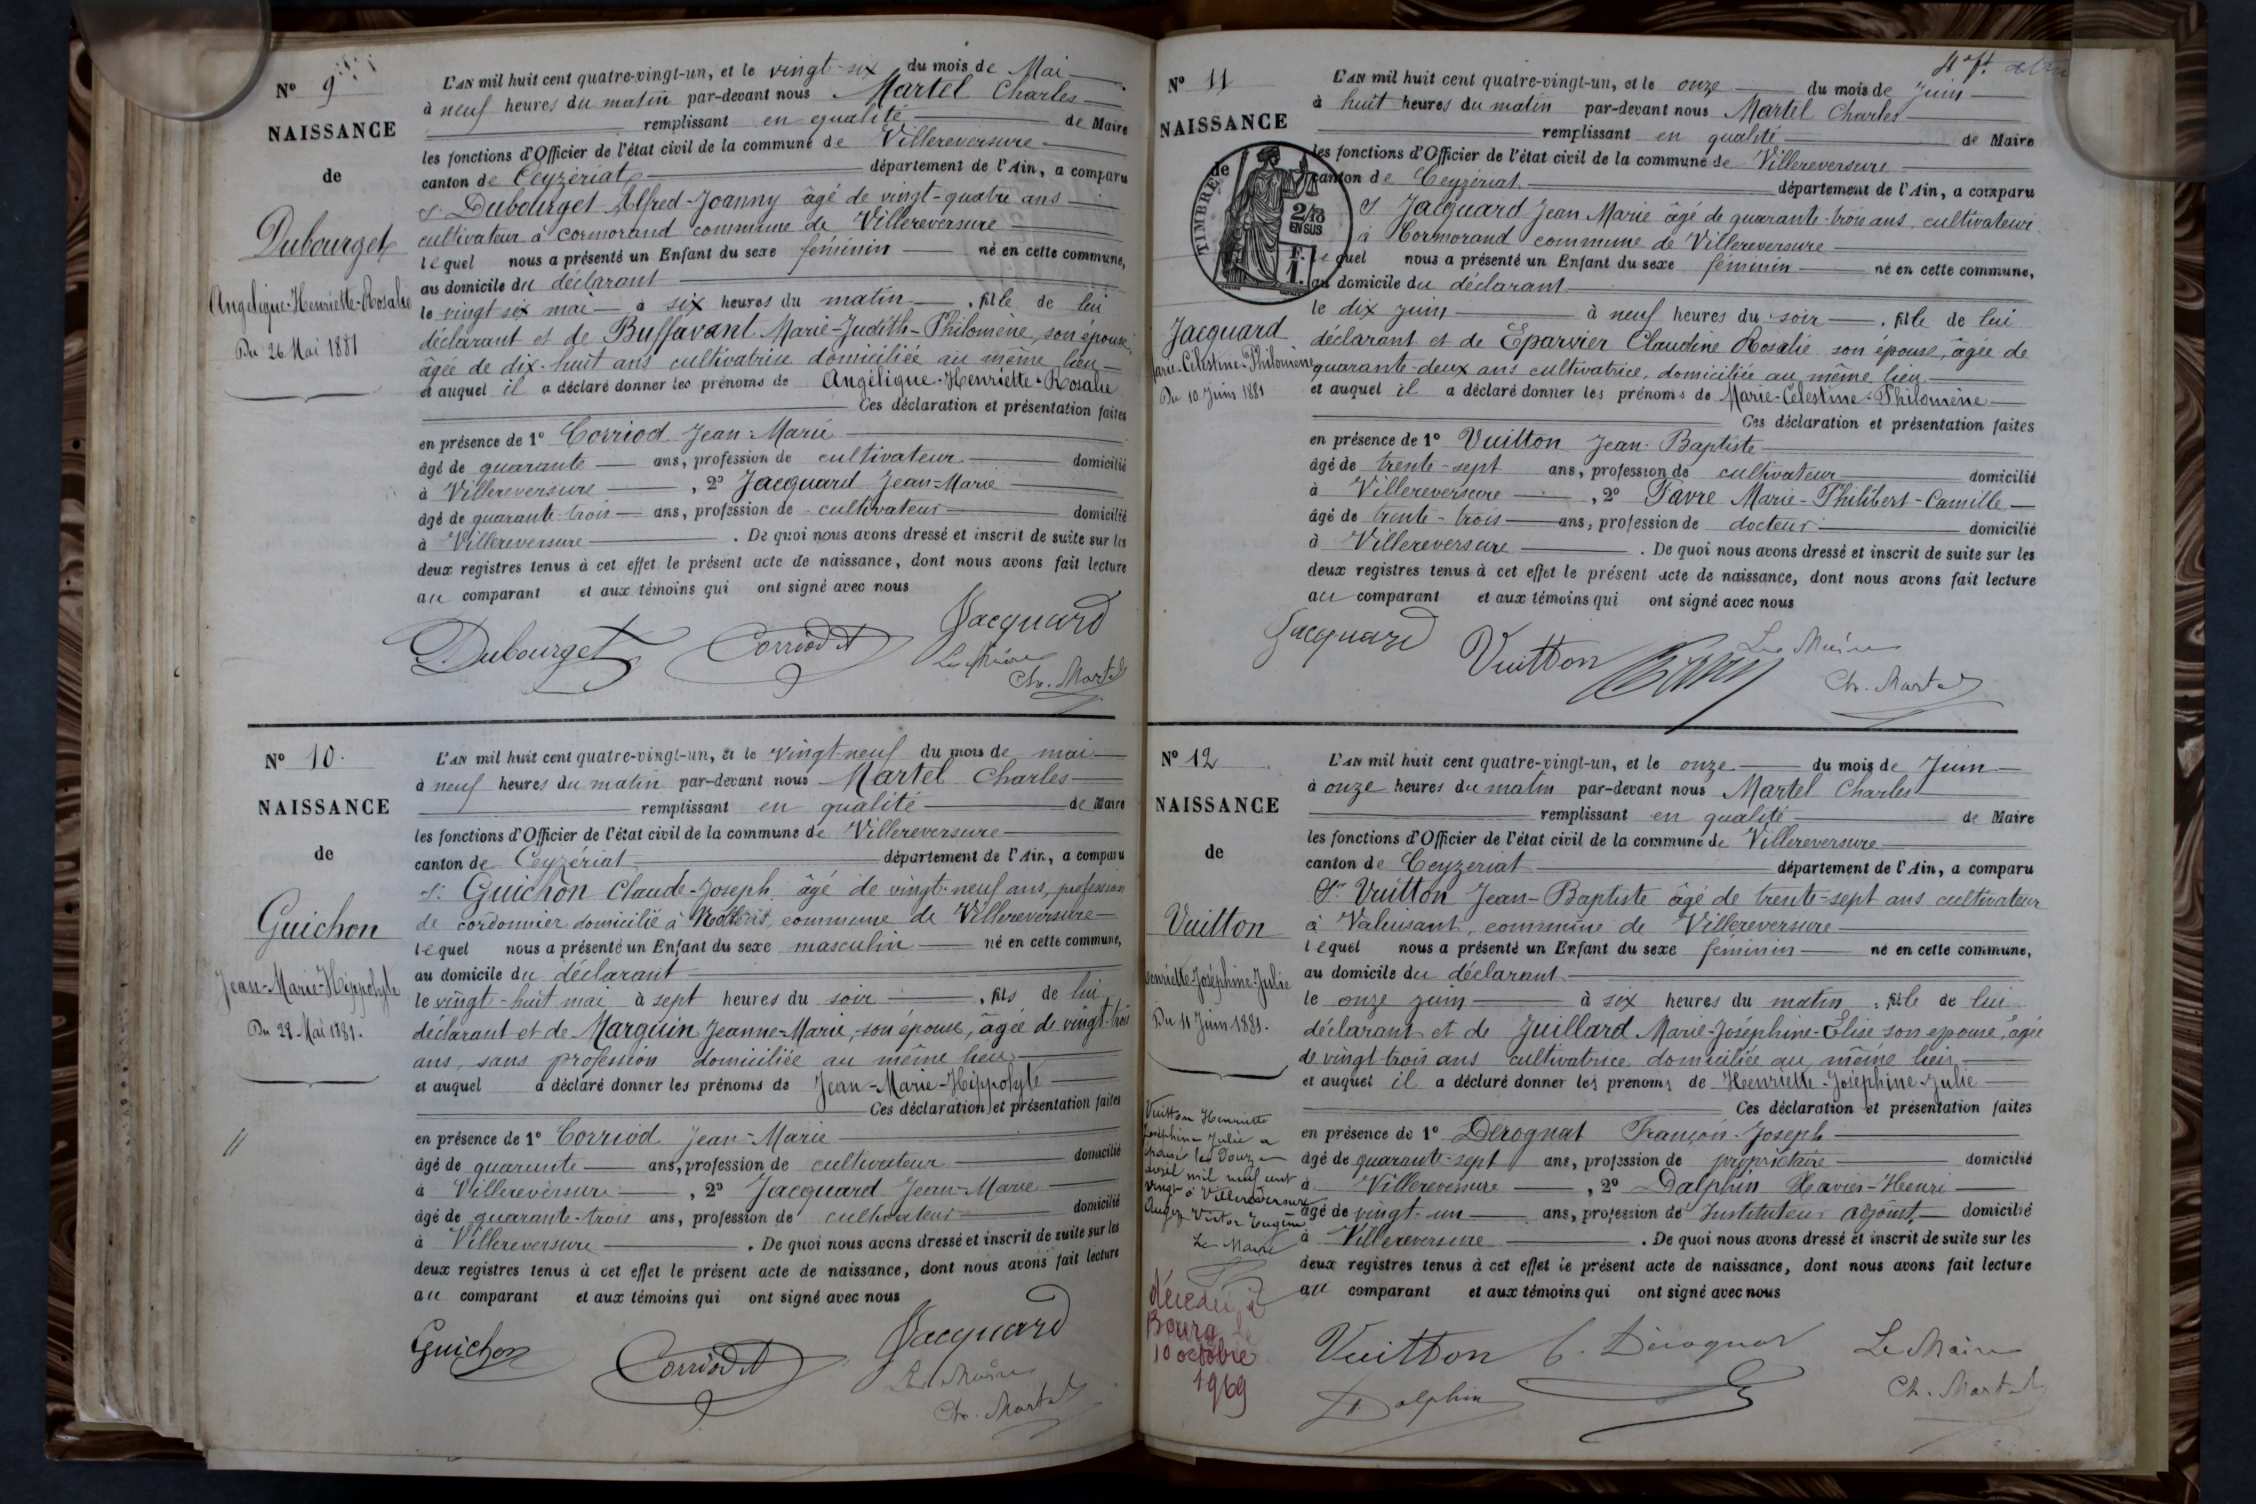 N° 9
NAISSANCE
de
Dubourget
Angélique-Henriette-Rosalie
Du 26 Mai 1881
L'AN mil huit cent quatre-vingt-un, et le vingt-six du mois de Mai
à neuf heures du matin par-devant nous Martel Charles
remplissant en qualité de Maire
les fonctions d'Officier de l'état civil de la commune de Villereversure
canton de Ceyzériat département de l'Ain, a comparu
Sr Dubourget Alfred-Joanny âgé de vingt-quatre ans
cultivateur à cormorand commune de Villereversure
lequel nous a présenté un Enfant du sexe féminin né en cette commune,
au domicile du déclarant
le vingt six mai à six heures du matin, fille de lui
déclarant et de Buffavant Marie-Judith-Philomène, son épouse,
âgée de dix-huit ans cultivatrice domiciliée au même lieu
et auquel il a déclaré donner les prénoms de Angélique-Henriette-Rosalie
Ces déclaration et présentation faites
en présence de 1° Corriod Jean-Marie
âgé de quarante ans, profession de cultivateur domicilié
à Villereversure, 2° Jacquard Jean-Marie
âgé de quarante-trois ans, profession de cultivateur domicilié
à Villereversure. De quoi nous avons dressé et inscrit de suite sur les
deux registres tenus à cet effet le présent acte de naissance, dont nous avons fait lecture
au comparant et aux témoins qui ont signé avec nous
Dubourget Corriod Jacquard
Le Maire
Ch. Martel
N° 10
NAISSANCE
de
Guichon
Jean-Marie-Hippolyte
Du 28 Mai 1881.
L'AN mil huit cent quatre-vingt-un, et le vingt-neuf du mois de mai
à neuf heures du matin par-devant nous Martel Charles
remplissant en qualité de Maire
les fonctions d'Officier de l'état civil de la commune de Villereversure
canton de Ceyzériat département de l'Ain, a comparu
Sr Guichon Claude-Joseph âgé de vingt-neuf ans, profession
de cordonnier domicilié à commune de Villereversure
lequel nous a présenté un Enfant du sexe masculin né en cette commune,
au domicile du déclarant
le vingt-huit mai à sept heures du soir, fils de lui
déclarant et de Marguin Jeanne-Marie, son épouse, âgée de vingt-trois
ans, sans profession domiciliée au même lieu
et auquel a déclaré donner les prénoms de Jean-Marie-Hippolyte
Ces déclaration et présentation faites
en présence de 1° Corriod Jean-Marie
âgé de quarante ans, profession de cultivateur domicilié
à Villereversure, 2° Jacquard Jean-Marie
âgé de quarante-trois ans, profession de cultivateur domicilié
à Villereversure. De quoi nous avons dressé et inscrit de suite sur les
deux registres tenus à cet effet le présent acte de naissance, dont nous avons fait lecture
au comparant et aux témoins qui ont signé avec nous
Guichon Corriod Jacquard
Le Maire
Ch. Martel
N° 11
NAISSANCE
de
TIMBRE
2/10
EN SUS
F.
1.
Jacquard
Marie-Célestine-Philomène
Du 10 Juin 1881
L'AN mil huit cent quatre-vingt-un, et le onze du mois de Juin
à huit heures du matin par-devant nous Martel Charles
remplissant en qualité de Maire
les fonctions d'Officier de l'état civil de la commune de Villereversure
canton de Ceyzériat département de l'Ain, a comparu
Sr Jacquard Jean Marie âgé de quarante-trois ans, cultivateur
à Cormorand commune de Villereversure
lequel nous a présenté un Enfant du sexe féminin né en cette commune,
au domicile du déclarant
le dix juin à neuf heures du soir, fille de lui
déclarant et de Eparvier Claudine Rosalie son épouse, âgée de
quarante-deux ans cultivatrice, domiciliée au même lieu
et auquel il a déclaré donner les prénoms de Marie-Célestine-Philomène
Ces déclaration et présentation faites
en présence de 1° Vuitton Jean-Baptiste
âgé de trente-sept ans, profession de cultivateur domicilié
à Villereversure, 2° Favre Marie-Philibert-Camille
âgé de trente-trois ans, profession de docteur domicilié
à Villereversure. De quoi nous avons dressé et inscrit de suite sur les
deux registres tenus à cet effet le présent acte de naissance, dont nous avons fait lecture
au comparant et aux témoins qui ont signé avec nous
Jacquard Vuitton Le Maire
Ch. Martel
N° 12
NAISSANCE
de
Vuitton
Henriette-Joséphine-Julie
Du 11 Juin 1881.
Vuitton Henriette
Joséphine Julie a
épousé le douze
avril mil neuf cent
vingt à Villereversure
Augez Victor Eugène
Le Maire
décédée à
Bourg le
10 octobre
1969
L'AN mil huit cent quatre-vingt-un, et le onze du mois de Juin
à onze heures du matin par-devant nous Martel Charles
remplissant en qualité de Maire
les fonctions d'Officier de l'état civil de la commune de Villereversure
canton de Ceyzériat département de l'Ain, a comparu
Sr Vuitton Jean-Baptiste âgé de trente-sept ans cultivateur
à Valuisant, commune de Villereversure
lequel nous a présenté un Enfant du sexe féminin né en cette commune,
au domicile du déclarant
le onze juin à six heures du matin, fille de lui
déclarant et de Juillard Marie-Joséphine-Elise son épouse, âgée
de vingt-trois ans cultivatrice domiciliée au même lieu
et auquel il a déclaré donner les prénoms de Henriette-Joséphine-Julie
Ces déclaration et présentation faites
en présence de 1° Derognat François-Joseph
âgé de quarante-sept ans, profession de propriétaire domicilié
à Villereversure, 2° Dalphin Xavier-Henri
âgé de vingt-un ans, profession de Instituteur adjoint domicilié
à Villereversure. De quoi nous avons dressé et inscrit de suite sur les
deux registres tenus à cet effet le présent acte de naissance, dont nous avons fait lecture
au comparant et aux témoins qui ont signé avec nous
Vuitton Derognat Le Maire
Dalphin Ch. Martel